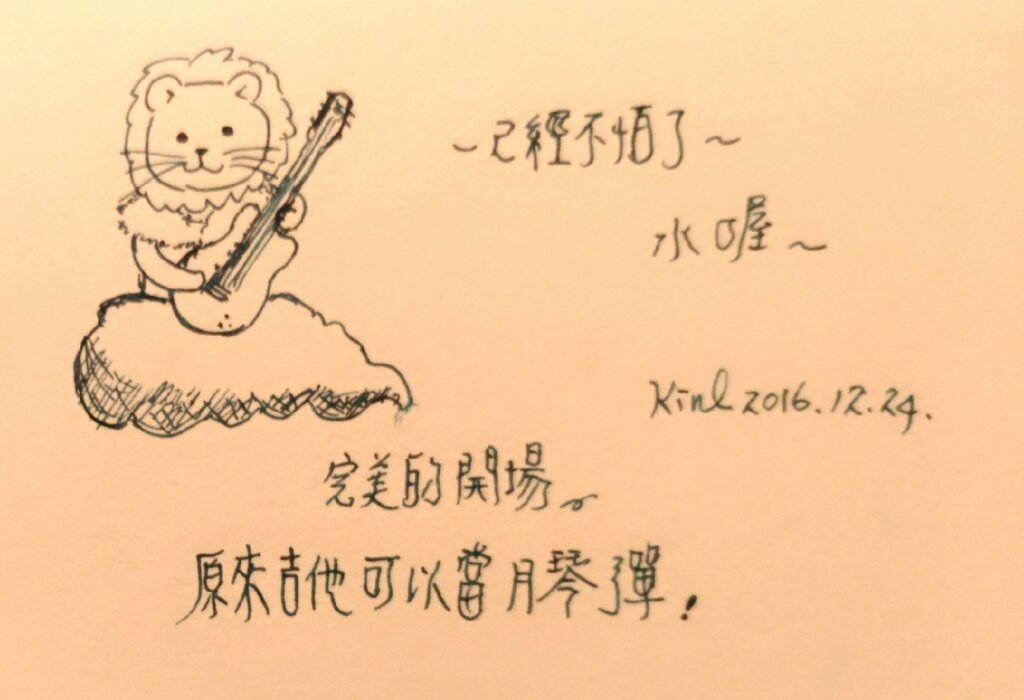 ~已經不怕了~
水喔~
Kinl 2016.12.24.
完美的開場。
原來吉他可以當月琴彈！